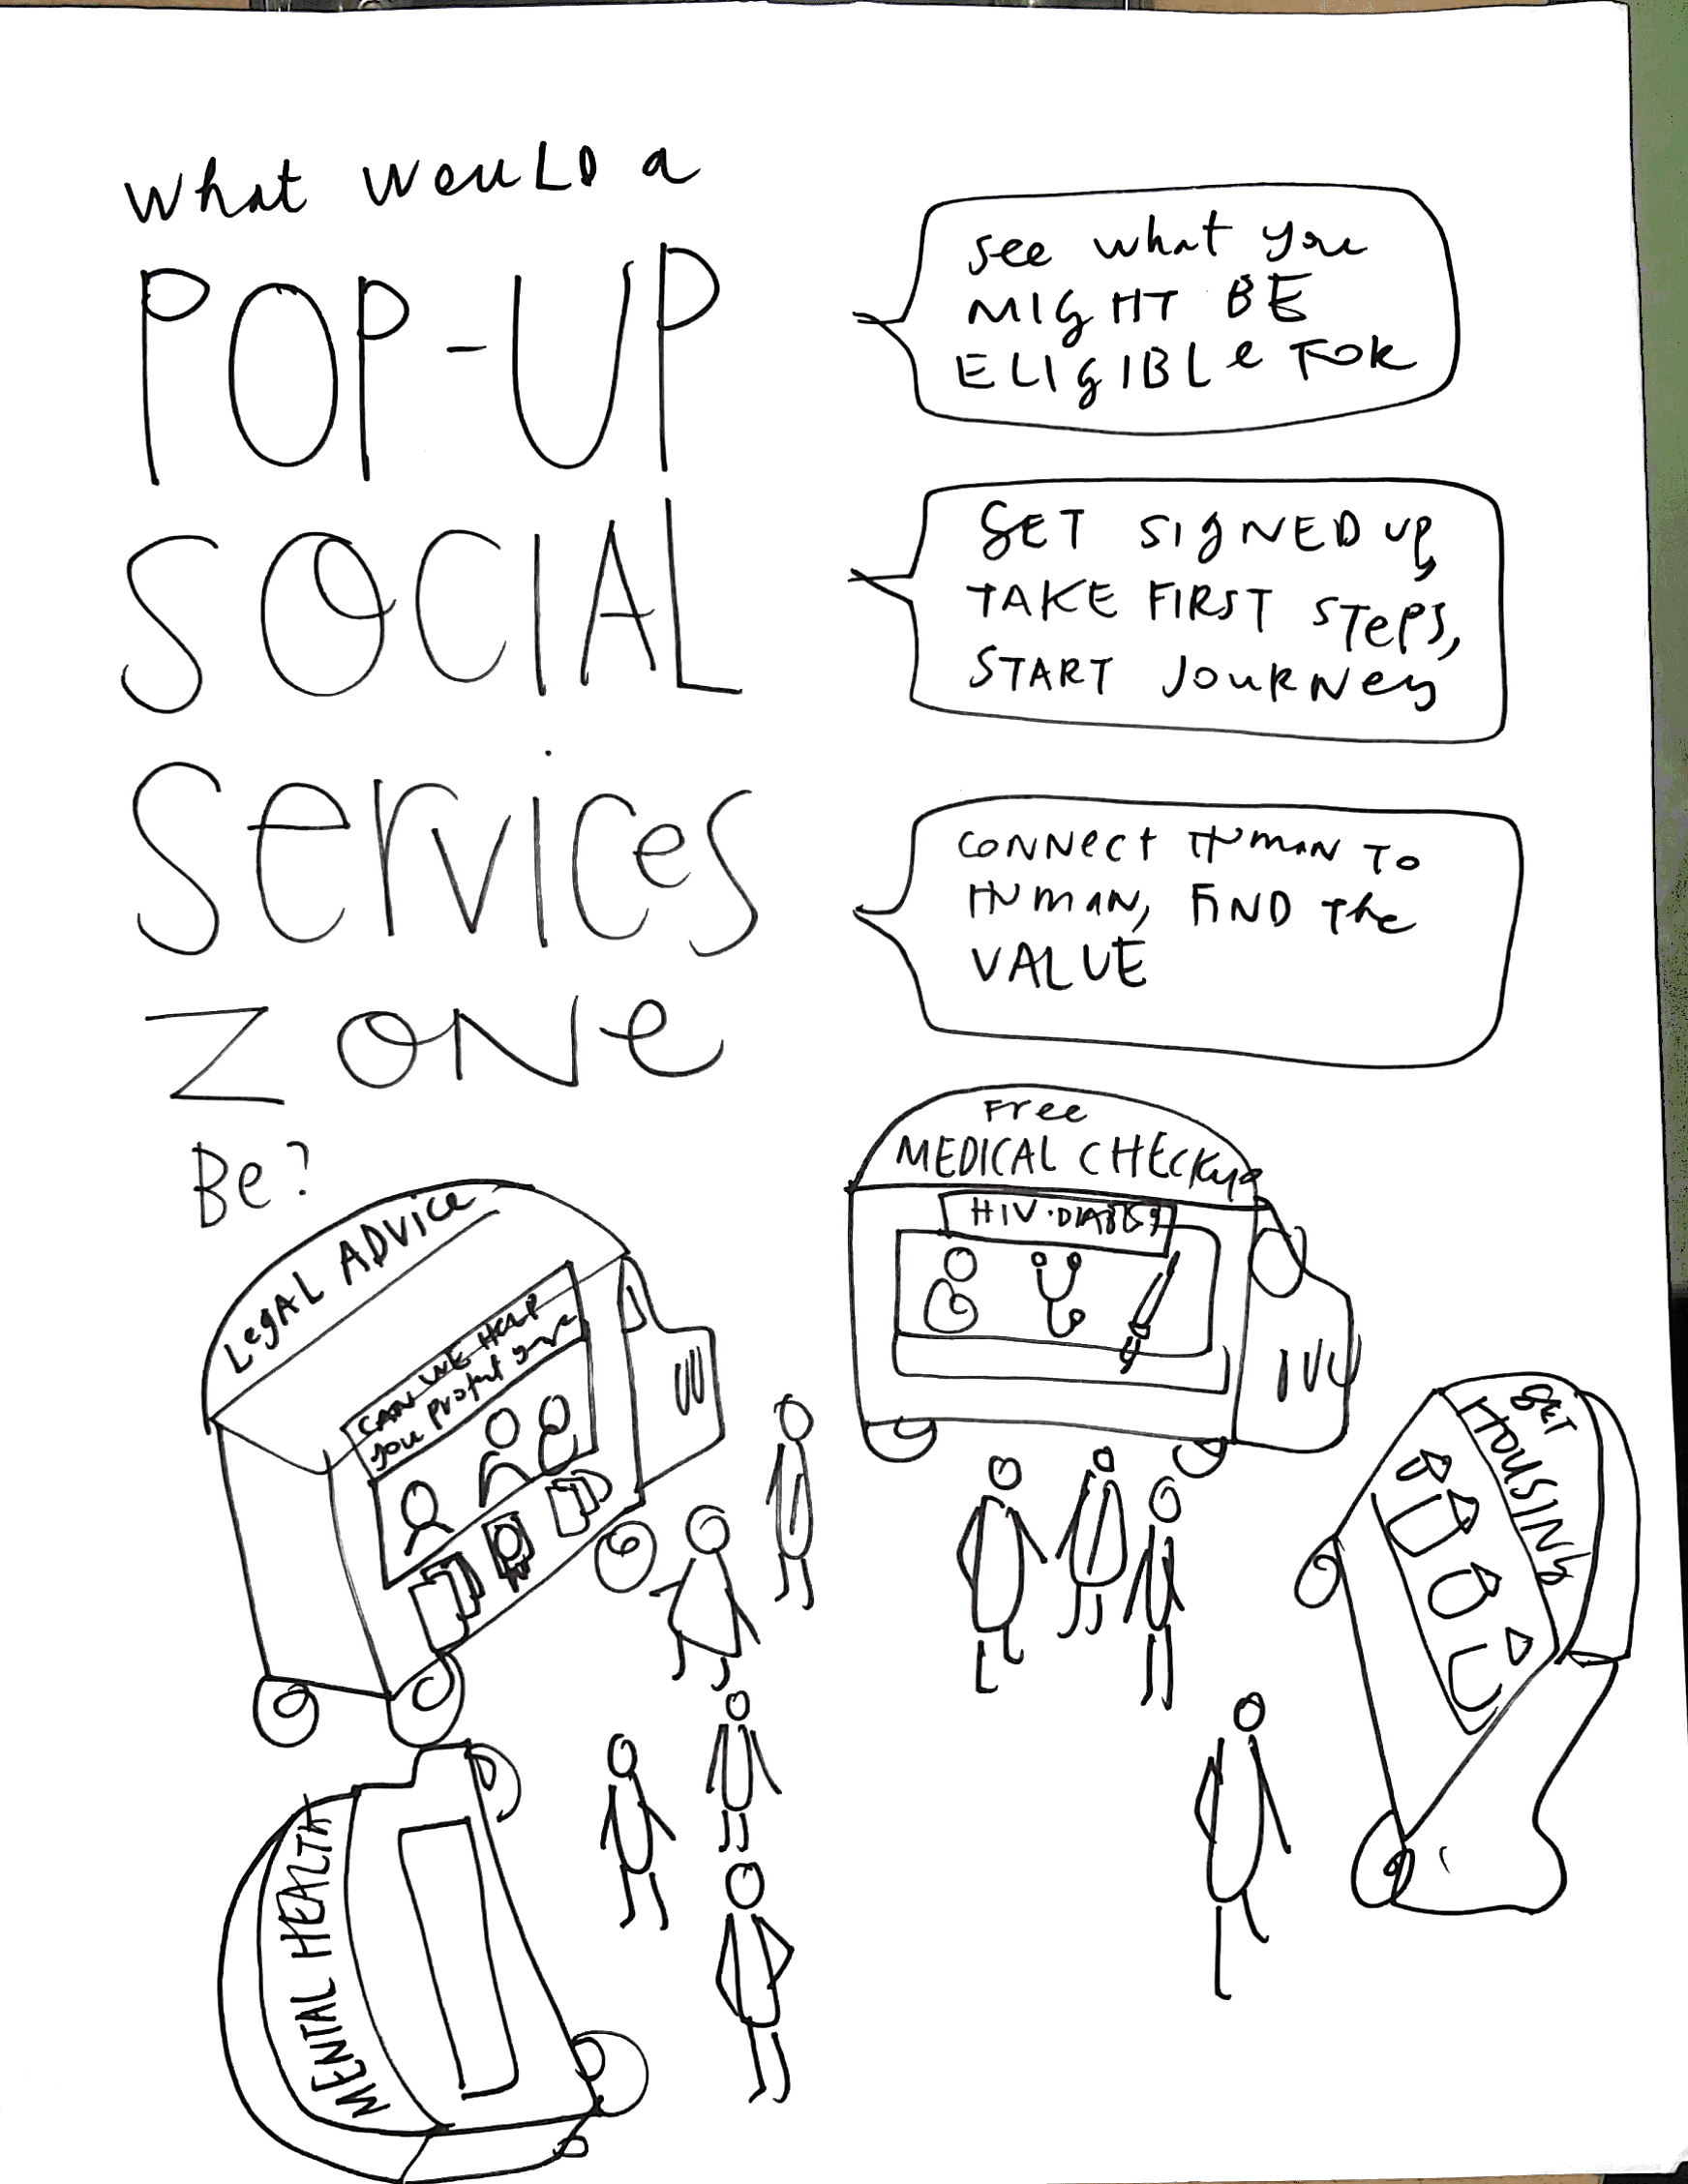 What WOULD a
POP-UP
SOCIAL
Services
ZONe
Be?
see what you
MIgHT BE
ELIgIBLe FOR
GET SIgNED UP,
TAKE FIRST STePS,
START JOURNey
CONNect HUMAN TO
HUMAN, FIND The
VALUE
LegAL ADVice
CAN WE HELP
you protect your
Free
MEDICAL CHECKup
HIV · DIABETES
GET
HOUSING
MENTAL HEALTH